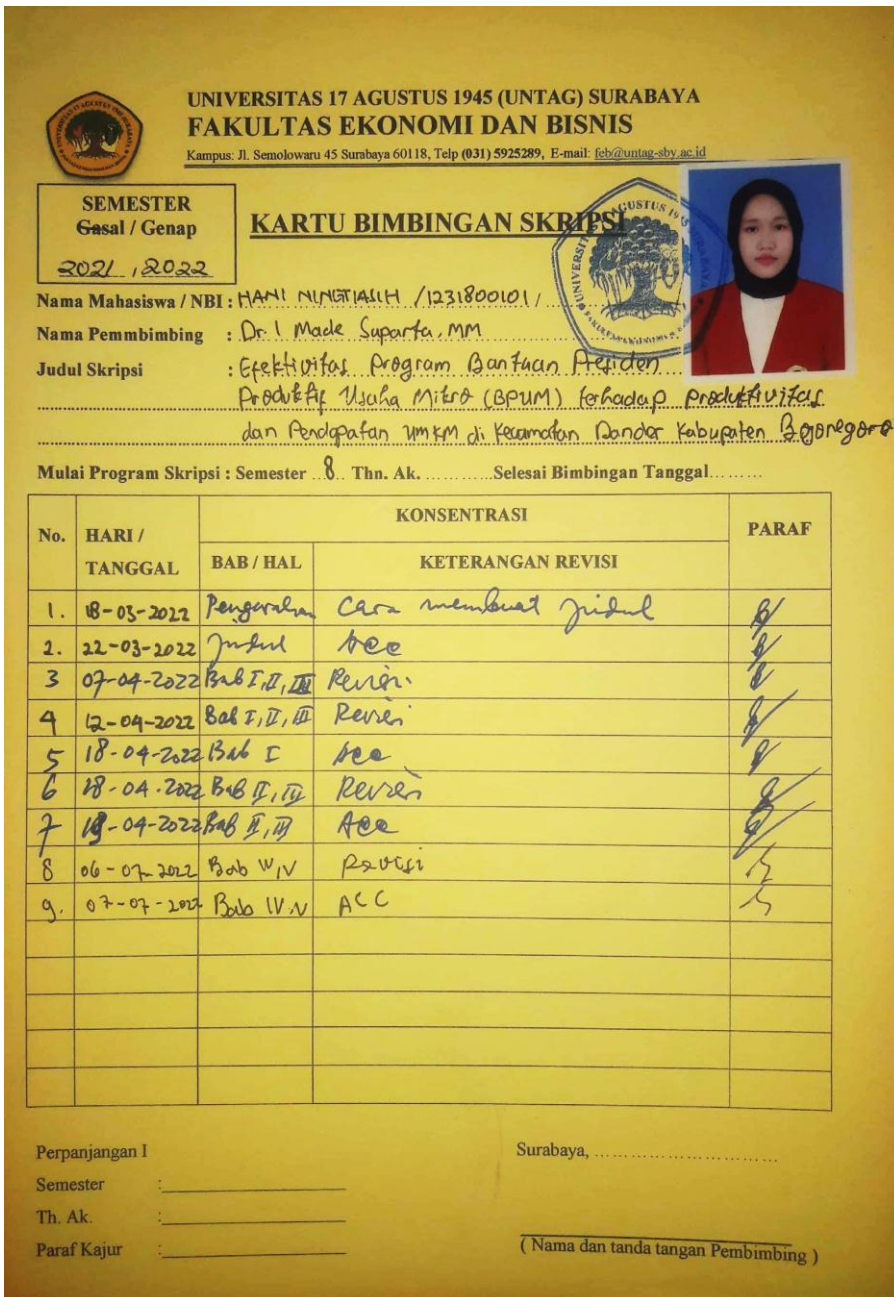 UNIVERSITAS 17 AGUSTUS 1945 (UNTAG) SURABAYA
FAKULTAS EKONOMI DAN BISNIS
Kampus: Jl. Semolowaru 45 Surabaya 60118, Telp (031) 5925289, E-mail: feb@untag-sby.ac.id
SEMESTER
Gasal / Genap
2021 / 2022
KARTU BIMBINGAN SKRIPSI
Nama Mahasiswa / NBI : HANI NINGTIASIH / 1231800101 /
Nama Pemmbimbing : Dr. I Made Suparta, MM
Judul Skripsi : Efektivitas Program Bantuan Presiden
Produktif Usaha Mikro (BPUM) terhadap produktivitas
dan Pendapatan UMKM di Kecamatan Dander Kabupaten Bojonegoro
Mulai Program Skripsi : Semester 8 Thn. Ak. ............Selesai Bimbingan Tanggal.........
No. HARI / TANGGAL KONSENTRASI PARAF
BAB / HAL KETERANGAN REVISI
1. 18-03-2022 Pengarahan Cara membuat judul
2. 22-03-2022 Judul Acc
3 07-04-2022 Bab I, II, III Revisi
4 12-04-2022 Bab I, II, III Revisi
5 18-04-2022 Bab I Acc
6 18-04-2022 Bab II, III Revisi
7 19-04-2022 Bab II, III Acc
8 06-07-2022 Bab IV, V Revisi
9. 07-07-2022 Bab IV, V ACC
Perpanjangan I
Semester :
Th. Ak. :
Paraf Kajur :
Surabaya, ..............................
( Nama dan tanda tangan Pembimbing )